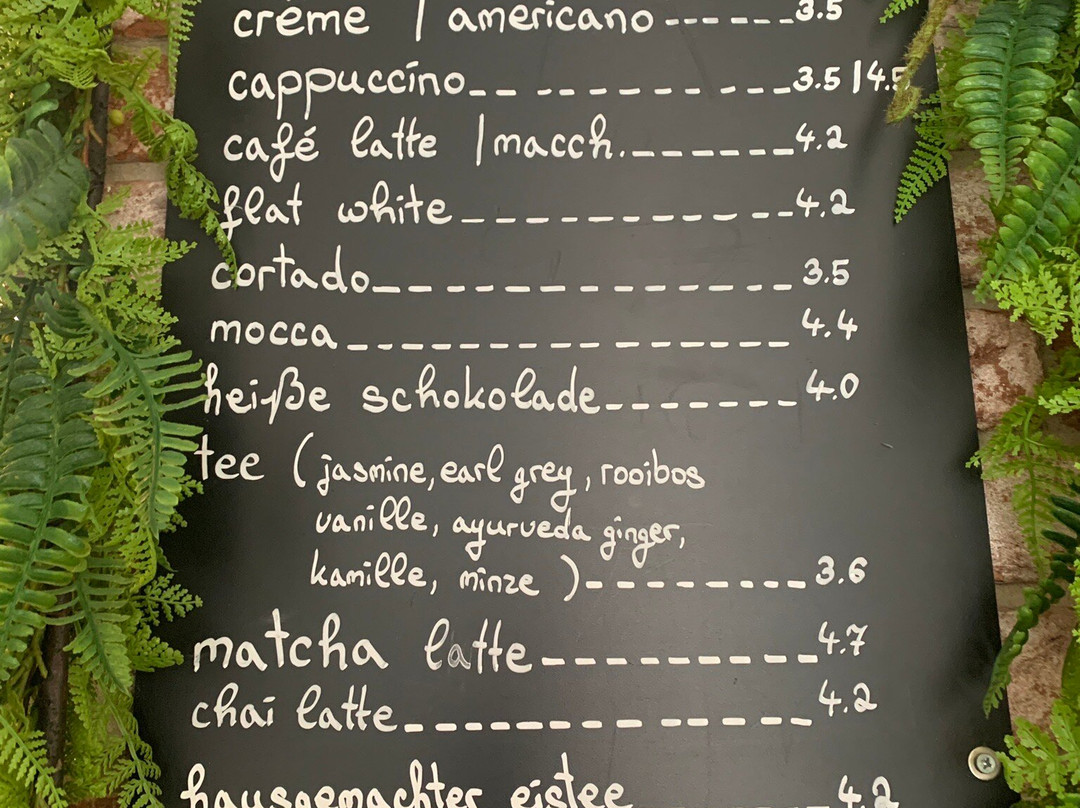 crème | americano ------3.5
cappuccino-- ---------3.5 | 4.5
café latte | macch.-------4.2
flat white-----------4.2
cortado-------------3.5
mocca-------------4.4
heiße schokolade-------4.0
tee (jasmine, earl grey, rooibos
vanille, ayurveda ginger,
kamille, minze )--------3.6
matcha latte----------4.7
chai latte------------4.2
hausgemachter eistee 4.2